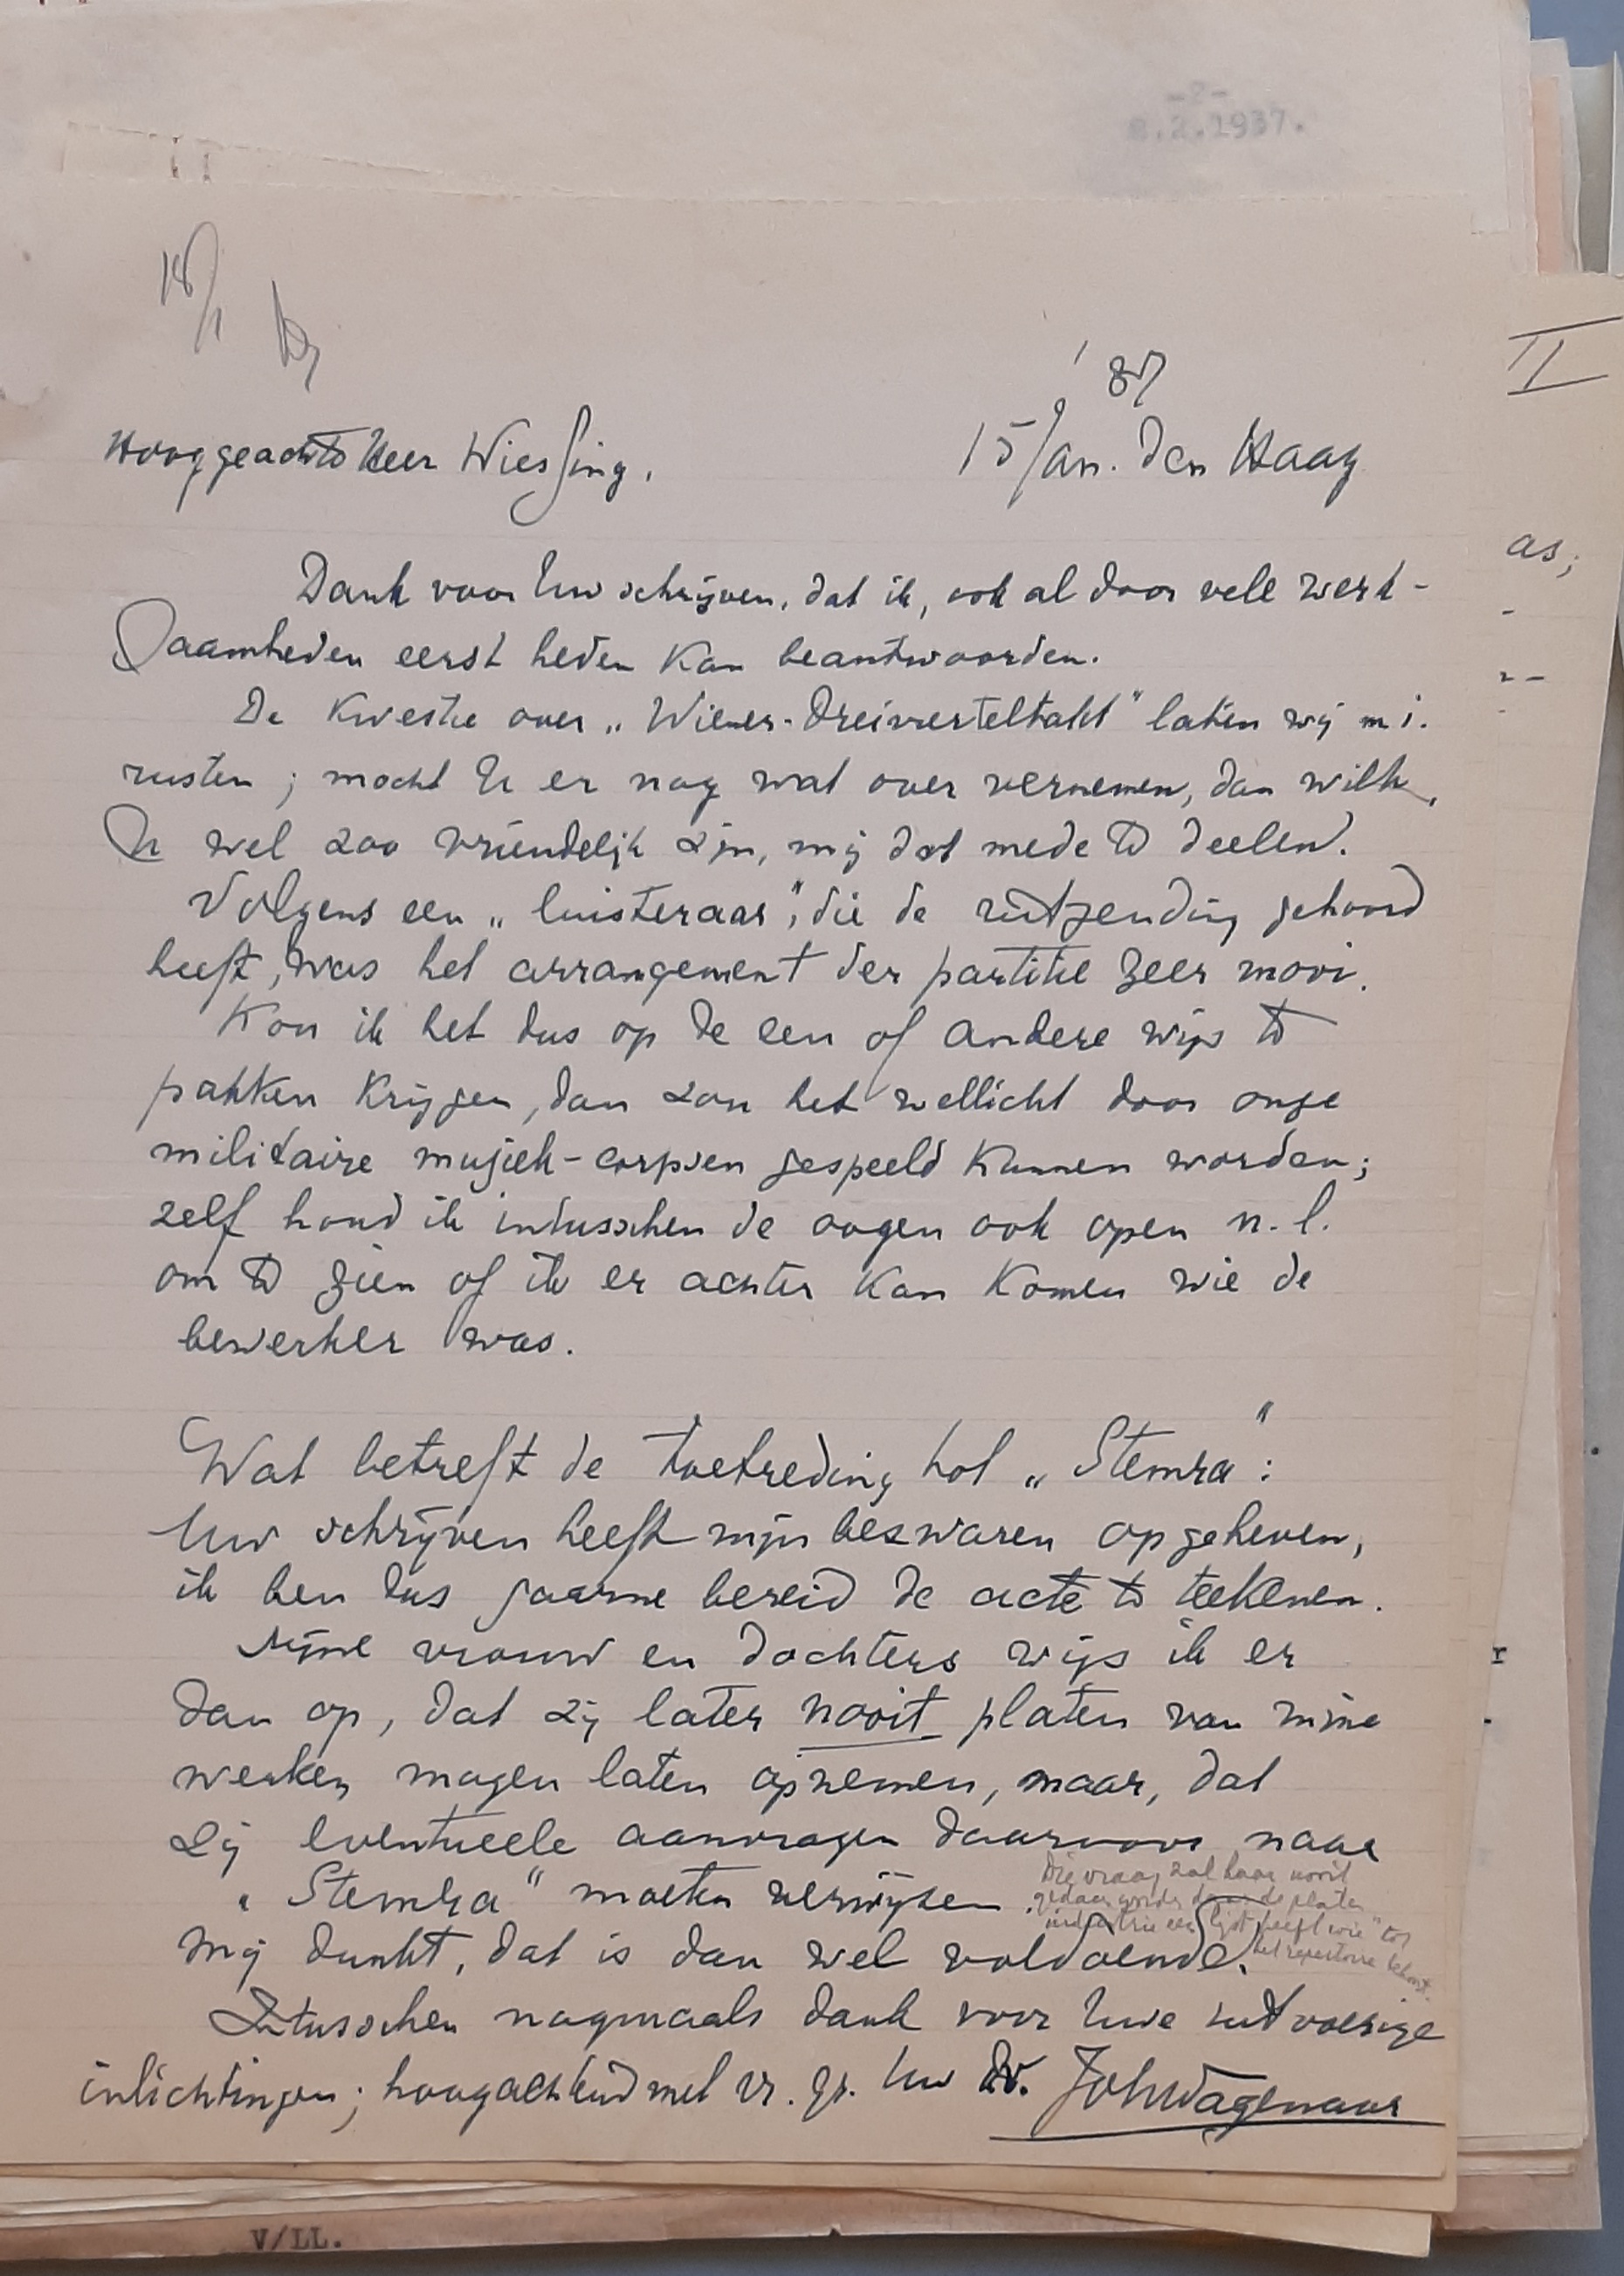 -2-
8.2.1937.
18/1
II
'37
Hooggeachte Heer Wiessing,
15 Jan. Den Haag
as;
Dank voor Uw schrijven, dat ik, ook al door vele werk-
zaamheden eerst heden kan beantwoorden.
De kwestie over „Wiener-Dreivierteltakt" laten wij m i.
rusten; mocht U er nog wat over vernemen, dan wilt
U wel zoo vriendelijk zijn, mij dat mede te deelen.
Volgens een „luisteraar", die de uitzending gehoord
heeft, was het arrangement der partitie zeer mooi.
Kon ik het dus op de een of andere wijs te
pakken krijgen, dan zou het wellicht door onze
militaire muziek-corpsen gespeeld kunnen worden;
zelf houd ik intusschen de oogen ook open n.l.
om te zien of ik er achter kan komen wie de
bewerker was.
Wat betreft de toetreding tot „Stemra":
Uw schrijven heeft mijn bezwaren opgeheven,
ik ben dus gaarne bereid de acte te teekenen.
Mijne vrouw en dochters wijs ik er
dan op, dat zij later nooit platen van mijne
werken mogen laten opnemen, maar, dat
zij eventueele aanvragen daarvoor naar
„Stemra" moeten verwijzen.
Die vraag zal haar nooit
gedaan worden daar de platen
industrie een lijst heeft wie tot
het repertoire behoort.
Mij dunkt, dat is dan wel voldoende.
Intusschen nogmaals dank voor Uwe uitvoerige
inlichtingen; hoogachtend met vr. gr. Uw Dr. Joh Wagenaar
V/LL.